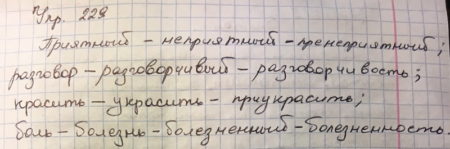 Упр. 229
Приятный – неприятный – пренеприятный;
разговор – разговорчивый – разговорчивость;
красить – украсить – приукрасить;
боль – болезнь – болезненный – болезненность.